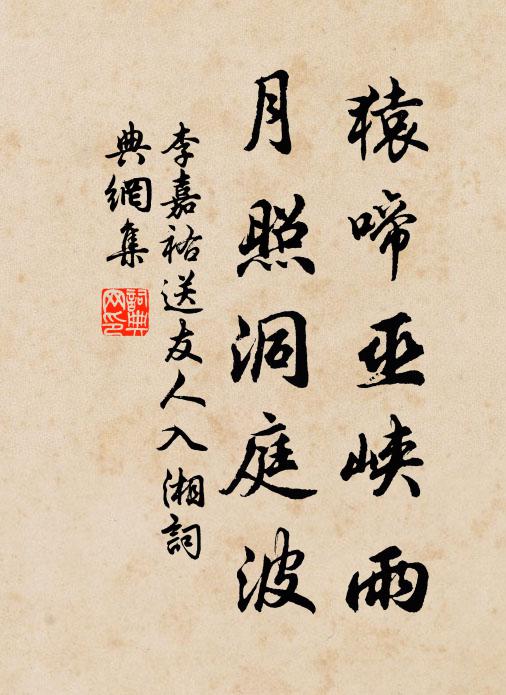 猿啼巫峽雨
月照洞庭波
李嘉祐送友人入湘詞
典網集
詞典網印